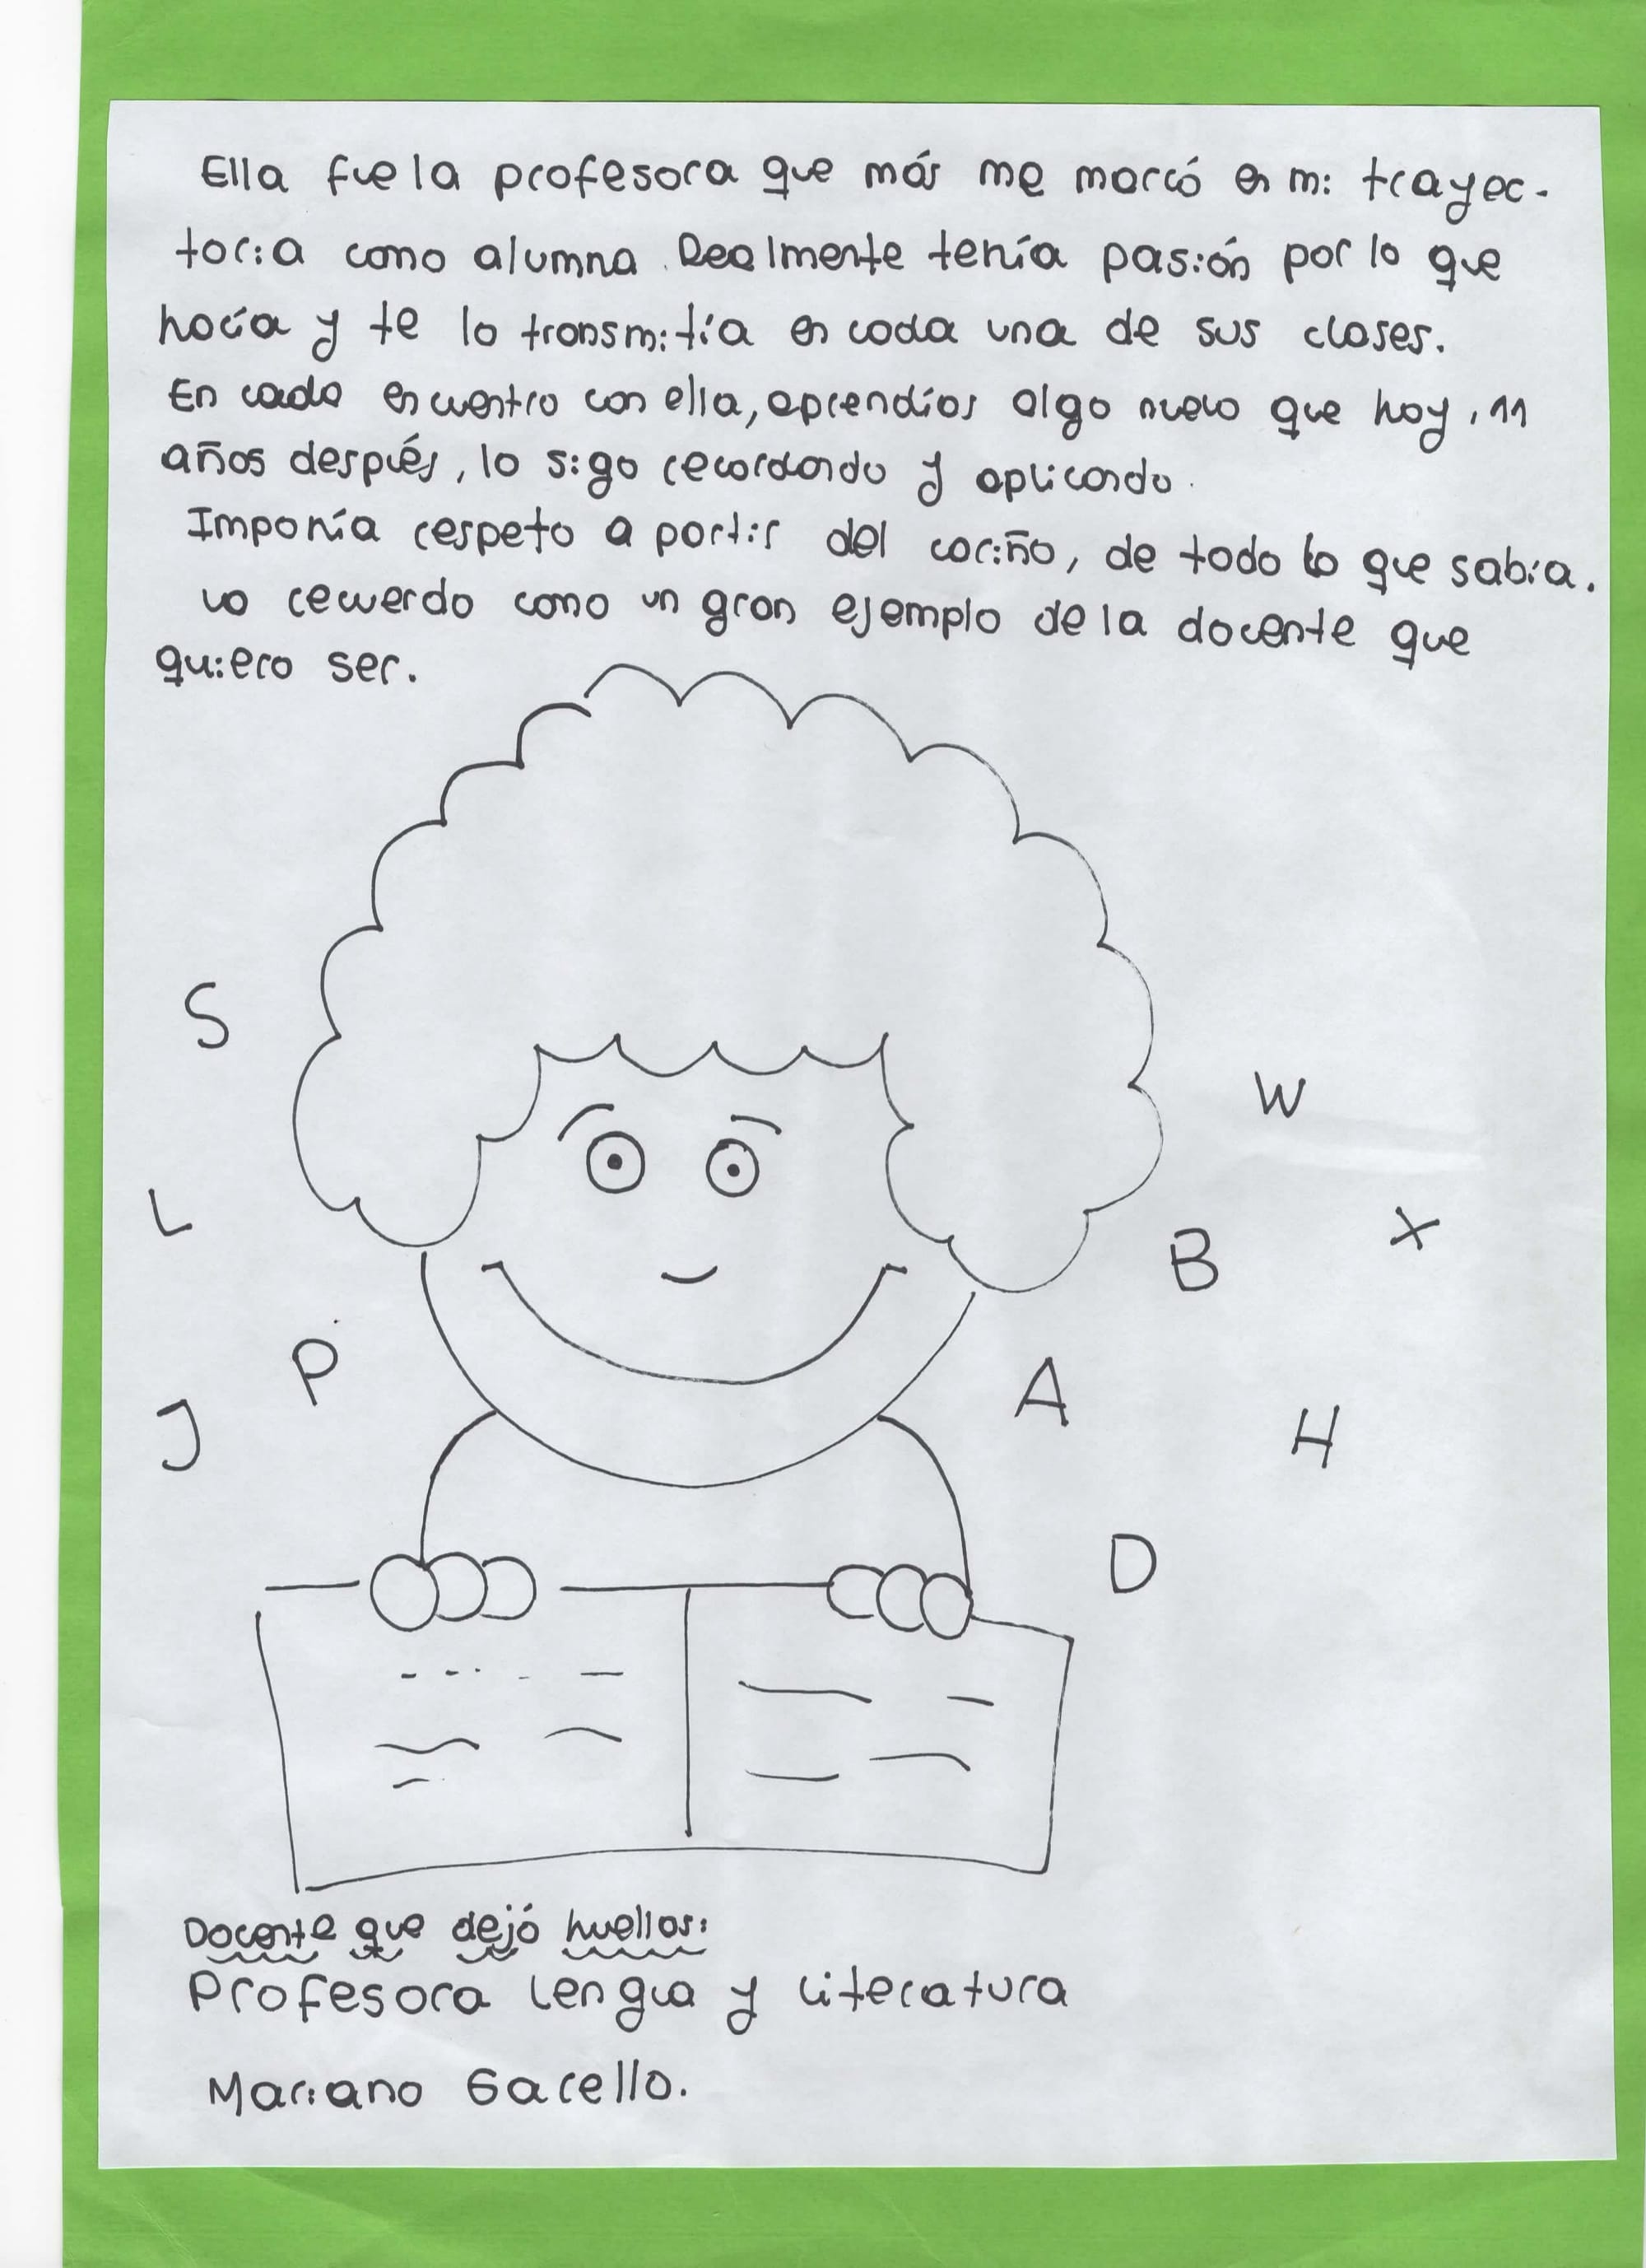 Ella fue la profesora que más me marcó en mi trayec-
toria como alumna. Realmente tenía pasión por lo que
hacía y te lo transmitía en cada una de sus clases.
En cada encuentro con ella, aprendías algo nuevo que hoy, 11
años después, lo sigo recordando y aplicando.
Imponía respeto a partir del cariño, de todo lo que sabía.
La recuerdo como un gran ejemplo de la docente que
quiero ser.
S
W
L
X
B
P
A
J
H
D
Docente que dejó huellas:
Profesora Lengua y Literatura
Mariana Garello.